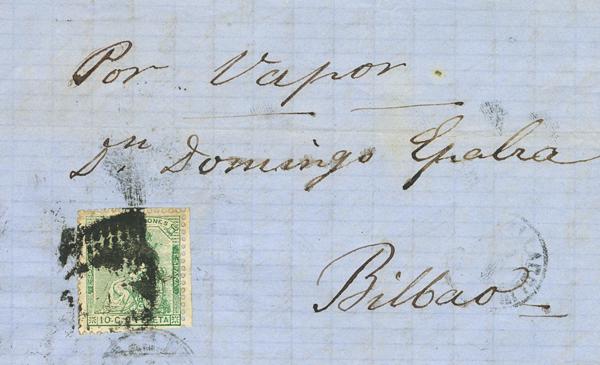 Por Vapor
Dn Domingo Epalza
Bilbao
10 C. PESETA